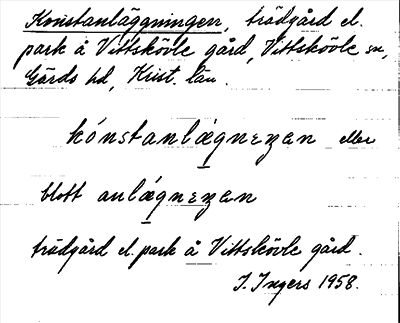 Konstanläggningen, trädgård el.
park å Vittskövle gård, Vittskövle sn,
Gärds hd, Krist. län.
kónstanlǽgneŋan eller
blott anlǽgneŋan
trädgård el. park å Vittskövle gård.
I. Ingers 1958.